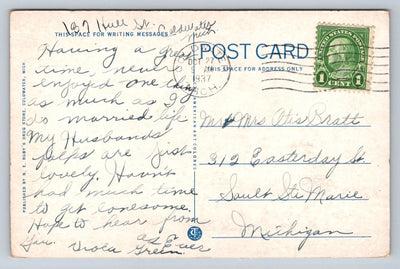 137 Hull St. Coldwater
Mich
THIS SPACE FOR WRITING MESSAGES
POST CARD
THIS SPACE FOR ADDRESS ONLY
OCT 27
1937
MICH.
UNITED STATES POSTAGE
1 CENT 1
Having a great
time, never
enjoyed one thing
as much as I
do married life.
My Husbands
folks are just
lovely. Havnt
had much time
to get lonesome.
Hope to hear from
You.
Viola Green
Mr & Mrs Otis Pratt
312 Easterday St
Sault Ste Marie
Michigan